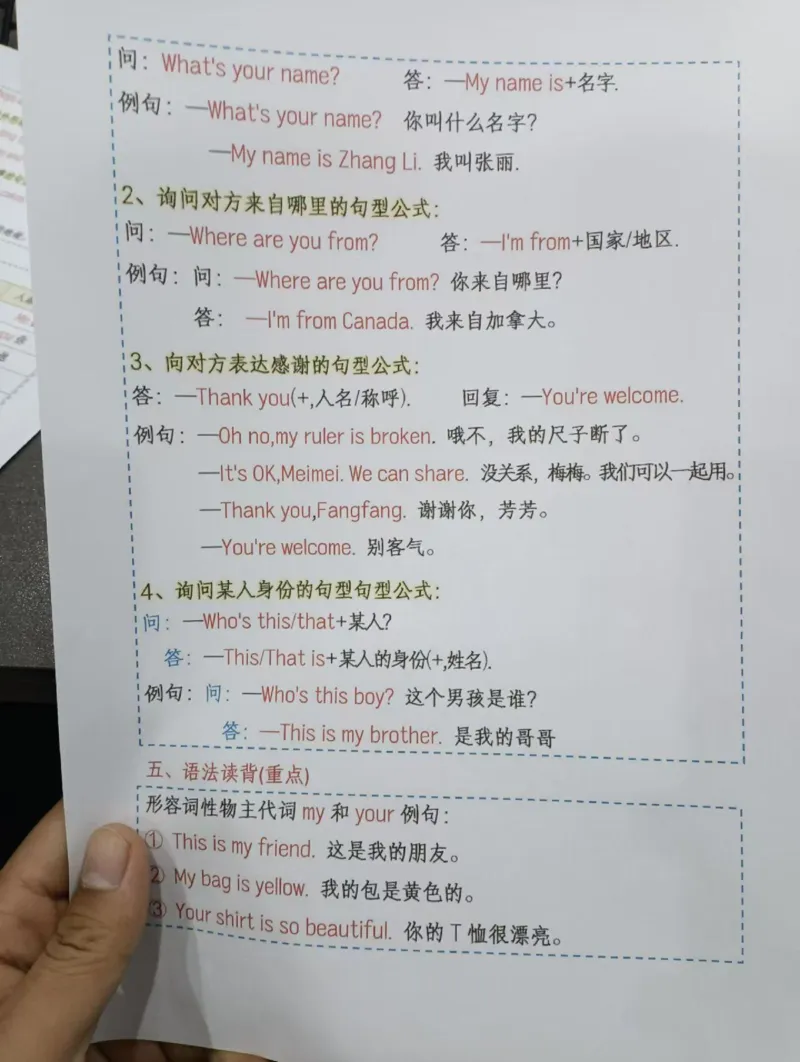 问：What's your name? 答：—My name is+名字.
例句：—What's your name? 你叫什么名字?
—My name is Zhang Li. 我叫张丽.
2、询问对方来自哪里的句型公式：
问：—Where are you from? 答：—I'm from+国家/地区.
例句：问：—Where are you from? 你来自哪里?
答：—I'm from Canada. 我来自加拿大。
3、向对方表达感谢的句型公式：
答：—Thank you(+,人名/称呼). 回复：—You're welcome.
例句：—Oh no,my ruler is broken. 哦不，我的尺子断了。
—It's OK,Meimei. We can share. 没关系，梅梅。我们可以一起用。
—Thank you,Fangfang. 谢谢你，芳芳。
—You're welcome. 别客气。
4、询问某人身份的句型句型公式：
问：—Who's this/that+某人?
答：—This/That is+某人的身份(+,姓名).
例句：问：—Who's this boy? 这个男孩是谁?
答：—This is my brother. 是我的哥哥
五、语法读背(重点)
形容词性物主代词 my 和 your 例句：
① This is my friend. 这是我的朋友。
② My bag is yellow. 我的包是黄色的。
③ Your shirt is so beautiful. 你的 T 恤很漂亮。